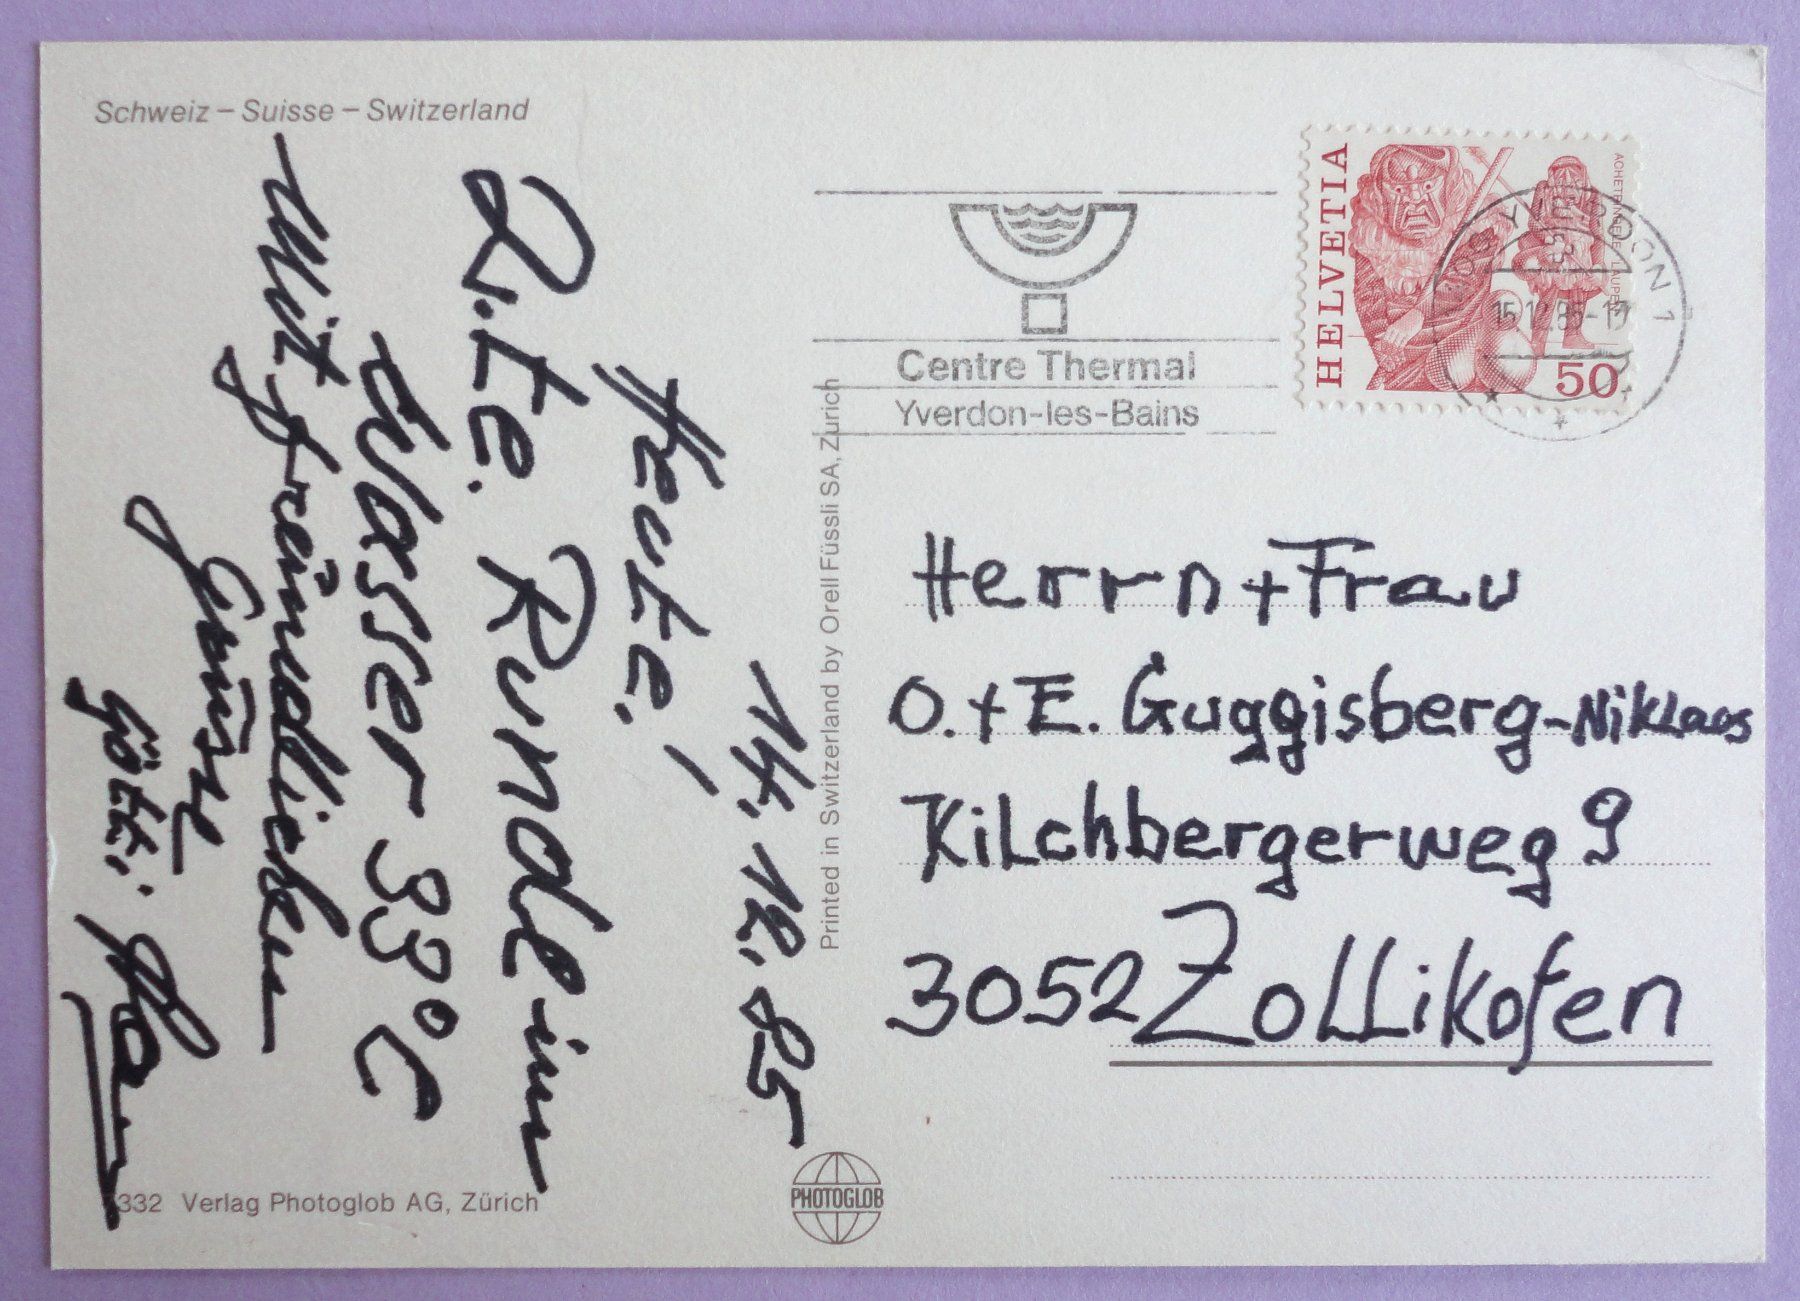 Schweiz – Suisse – Switzerland
14. 12. 85
Heute!
2.te. Runde im
Wasser 33°C
Mit freundlichen
Grüsse
Götti
332 Verlag Photoglob AG, Zürich
Printed in Switzerland by Orell Füssli SA, Zürich
PHOTOGLOB
Centre Thermal
Yverdon-les-Bains
HELVETIA
ACHETRINGELE LAUPEN
50
YVERDON 1
15.12.85-17
Herrn + Frau
O. + E. Guggisberg-Niklaus
Kilchbergerweg 9
3052 Zollikofen